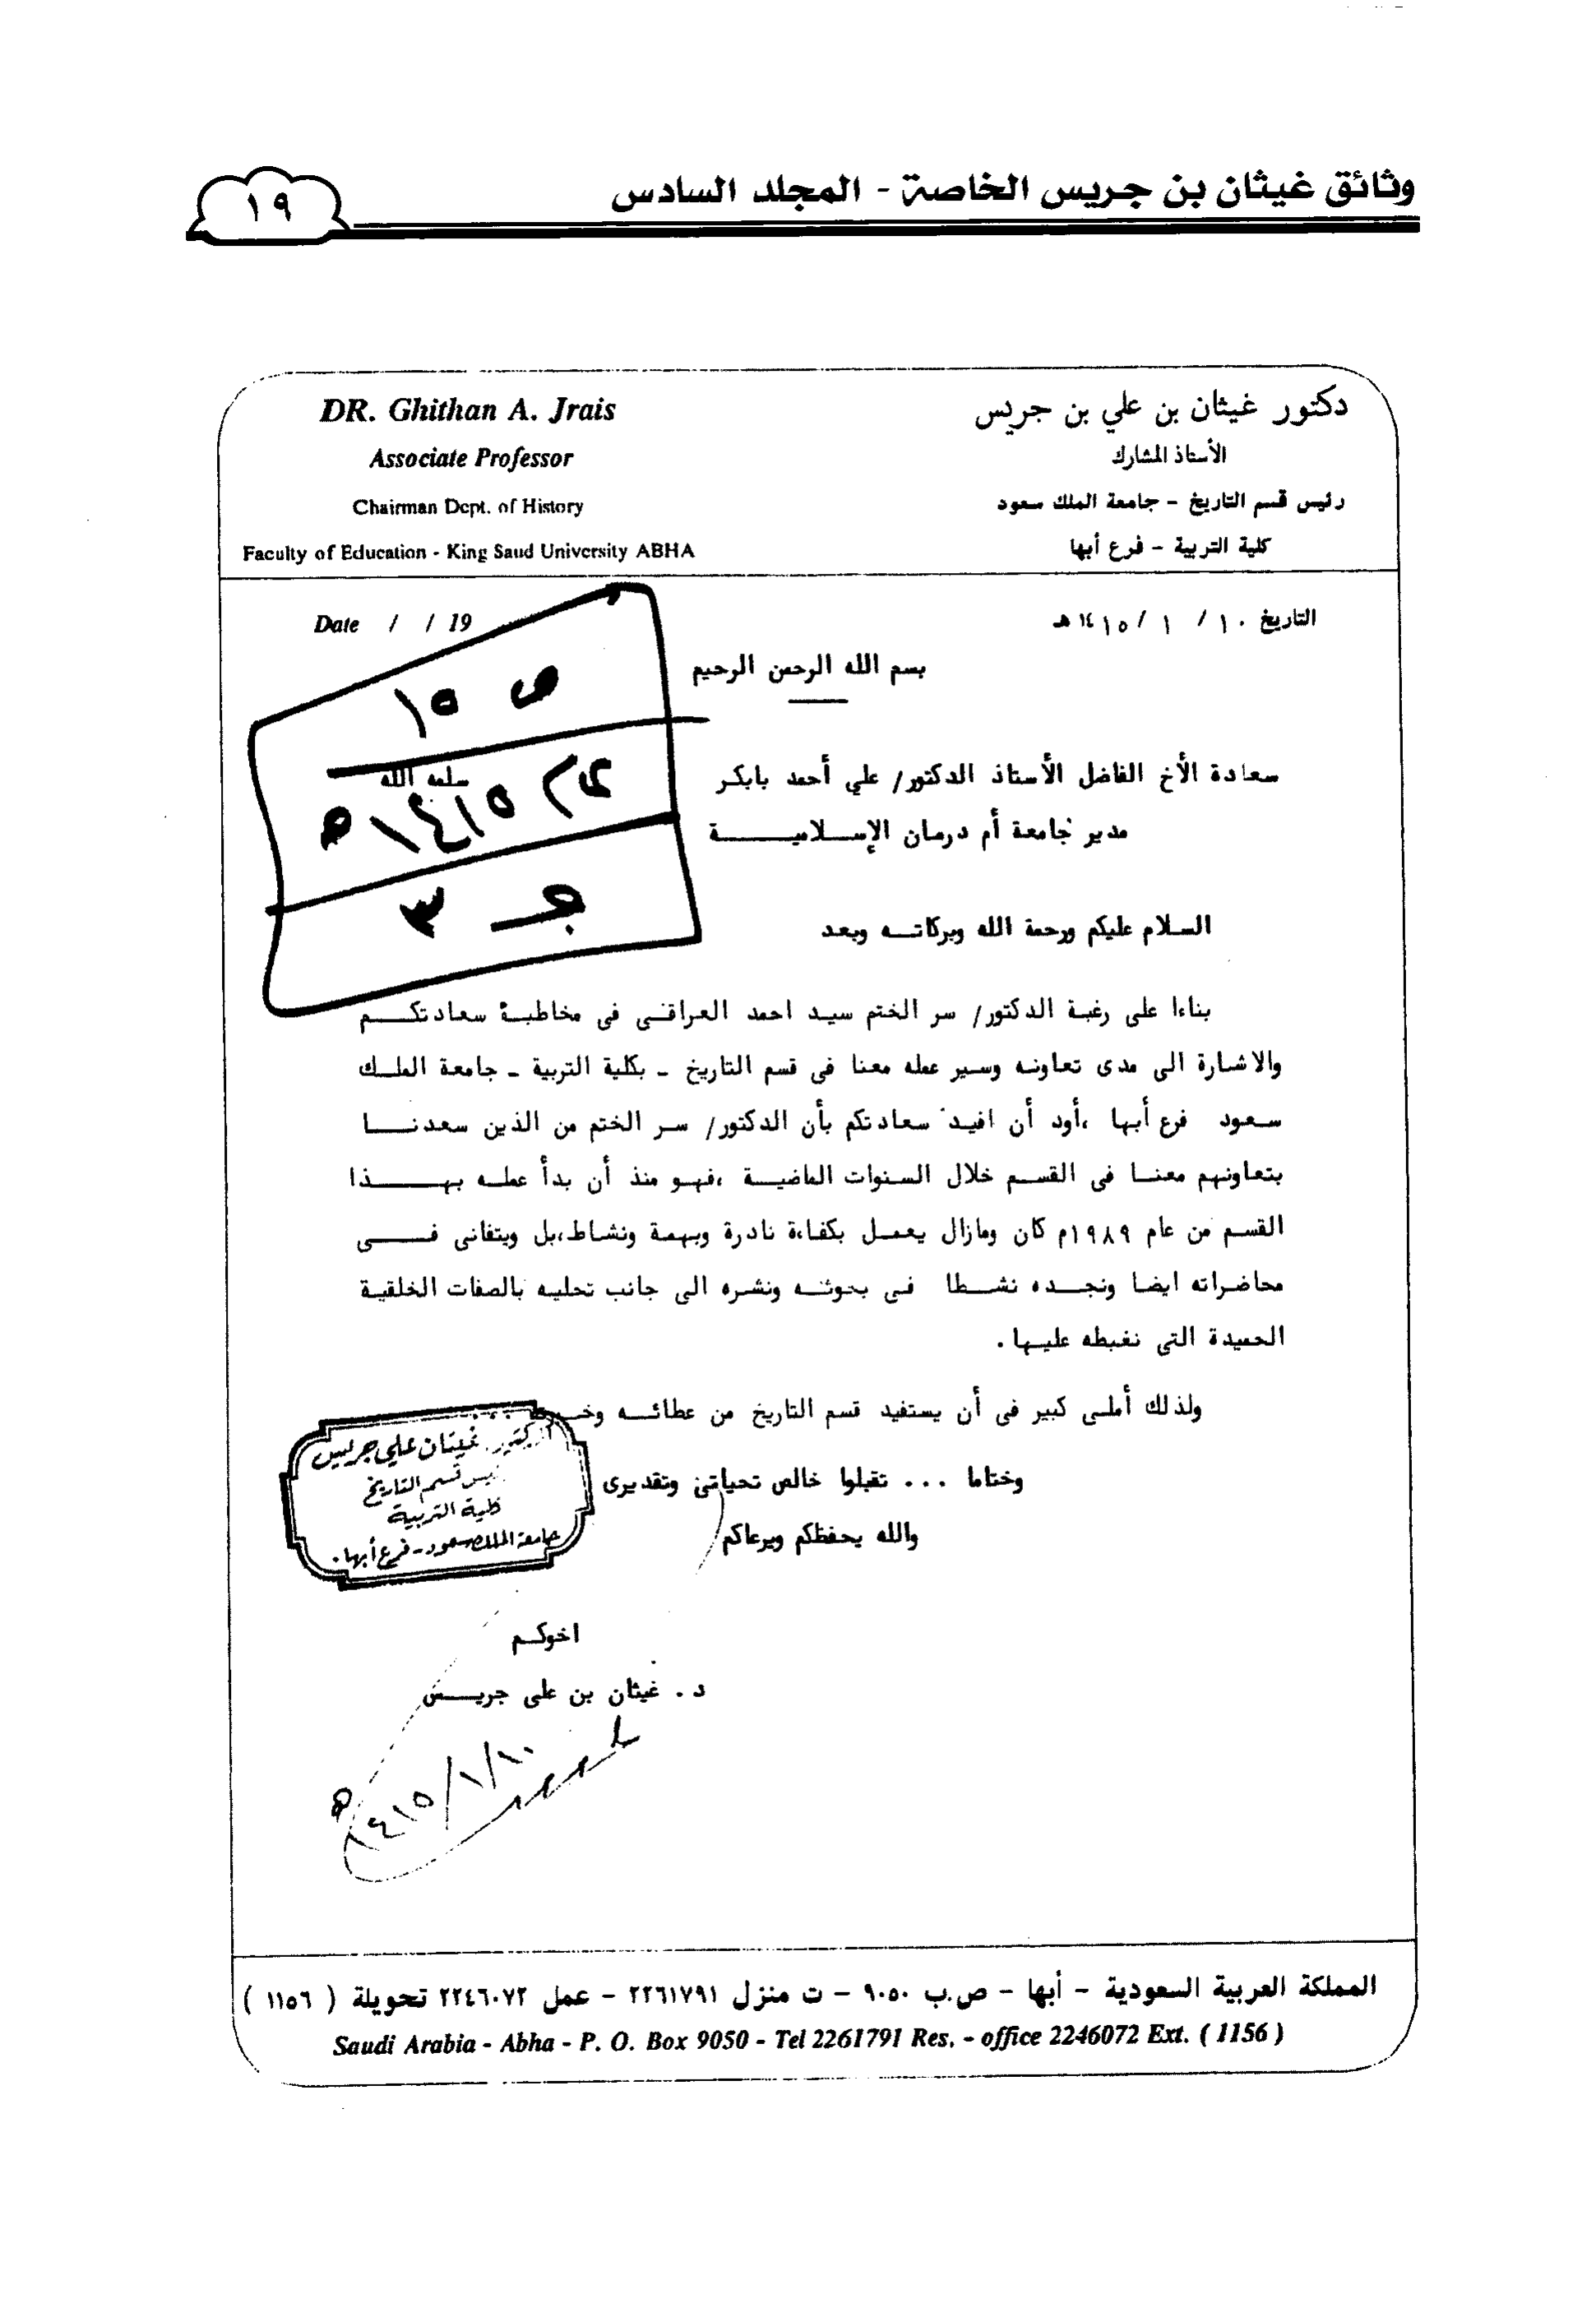 وثائق غيثان بن جريس الخاصة - المجلد السادس
١٩
دكتور غيثان بن علي بن جريس
الأستاذ المشارك
رئيس قسم التاريخ - جامعة الملك سعود
كلية التربية - فرع أبها
DR. Ghithan A. Jrais
Associate Professor
Chairman Dept. of History
Faculty of Education - King Saud University ABHA
التاريخ ١٠ / ١ / ١٤١٥ هـ
Date / / 19
بسم الله الرحمن الرحيم
ص ١٥
١٤١٥ هـ
جـ ٣
سعادة الأخ الفاضل الأستاذ الدكتور/ علي أحمد بابكر سلمه الله
مدير جامعة أم درمان الإسلامية
السلام عليكم ورحمة الله وبركاته وبعد
بناءا على رغبة الدكتور/ سر الختم سيد احمد العراقى فى مخاطبة سعادتكم
والاشارة الى مدى تعاونه وسير عمله معنا فى قسم التاريخ - بكلية التربية - جامعة الملك
سعود فرع أبها ،أود أن افيد سعادتكم بأن الدكتور/ سر الختم من الذين سعدنا
بتعاونهم معنا فى القسم خلال السنوات الماضية ،فهو منذ أن بدأ عمله بهذا
القسم من عام ١٩٨٩م كان ومازال يعمل بكفاءة نادرة وبهمة ونشاط،بل ويتفانى فى
محاضراته ايضا ونجده نشطا فى بحوثه ونشره الى جانب تحليه بالصفات الخلقية
الحميدة التى نغبطه عليها .
ولذلك أملى كبير فى أن يستفيد قسم التاريخ من عطائه
وختاما ... تقبلوا خالص تحياتى وتقديرى
والله يحفظكم ويرعاكم
الدكتور غيثان علي جريس
رئيس قسم التاريخ
كلية التربية
جامعة الملك سعود - فرع أبها .
اخوكم
د . غيثان بن على جريس
١٤١٥/١/١٠ هـ
المملكة العربية السعودية - أبها - ص.ب ٩٠٥٠ - ت منزل ٢٢٦١٧٩١ - عمل ٢٢٤٦٠٧٢ تحويلة ( ١١٥٦ )
Saudi Arabia - Abha - P. O. Box 9050 - Tel 2261791 Res. - office 2246072 Ext. ( 1156 )